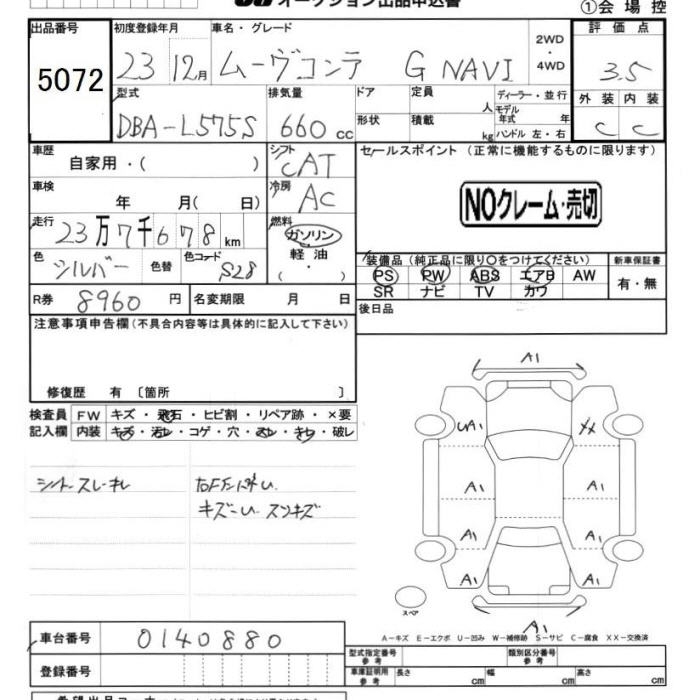 オークション出品申込書
①会場控
出品番号
5072
初度登録年月
23 12月
車名・グレード
ムーヴコンテ G NAVI
2WD
・
4WD
評価点
3.5
外装 内装
C C
型式
DBA-L575S
排気量
660 cc
ドア
形状
定員
人
積載
kg
ディーラー・並行
モデル年式 年
ハンドル 左・右
車歴
自家用・( )
シフト
CAT
車検
年 月( 日)
冷房
AC
走行
23万7千678km
燃料
ガソリン
軽油
・
( )
色
シルバー
色替
色コード
S28
R券 8960 円
名変期限 月 日
セールスポイント (正常に機能するものに限ります)
NOクレーム・売切
装備品 (純正品に限り○をつけてください)
PS PW ABS エアB AW
SR ナビ TV カワ
新車保証書
有・無
後日品
注意事項申告欄(不具合内容等は具体的に記入して下さい)
修復歴 有 〔箇所 〕
検査員記入欄
FW キズ・飛石・ヒビ割・リペア跡・×要
内装 キズ・汚レ・コゲ・穴・スレ・キレ・破レ
シートスレ・キレ
キズ
A1
UA1 XX
A1 A1
A1 A1
A1 A1
A1
スペア
A-キズ E-エクボ U-凹み W-補修跡 S-サビ C-腐食 XX-交換済
車台番号
0140880
登録番号
型式指定番号
参考
類別区分番号
参考
車庫証明用
参考
長さ cm 幅 cm 高さ cm